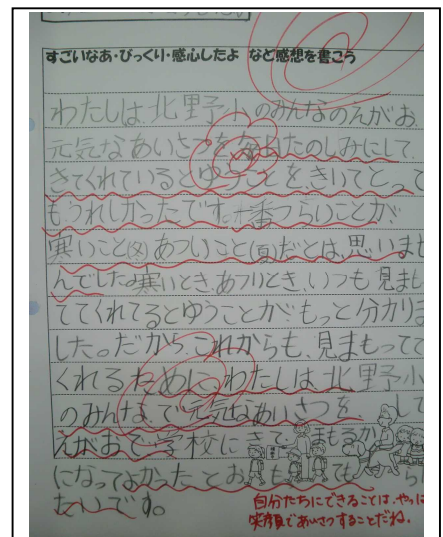 すごいなあ・びっくり・感心したよ など感想を書こう
わたしは、北野小のみんなのえがお、
元気なあいさつを毎日たのしみにして、
きてくれているとゆうことをきいてとって
もうれしかったです。一番つらいことが
寒いこと(冬)あついこと(夏)だとは、思いませ
んでした。寒いとき、あついとき、いつも見まも
ててくれてるとゆうことがもっと分かりま
した。だから、これからも、見まもってて
くれるために、わたしは、北野小
のみんなで元気なあいさつを、して
えがおで学校にきて、まもるか
になってよかったとおもっても
たいです。
自分たちにできることは、やっぱ
笑顔であいさつすることだね。